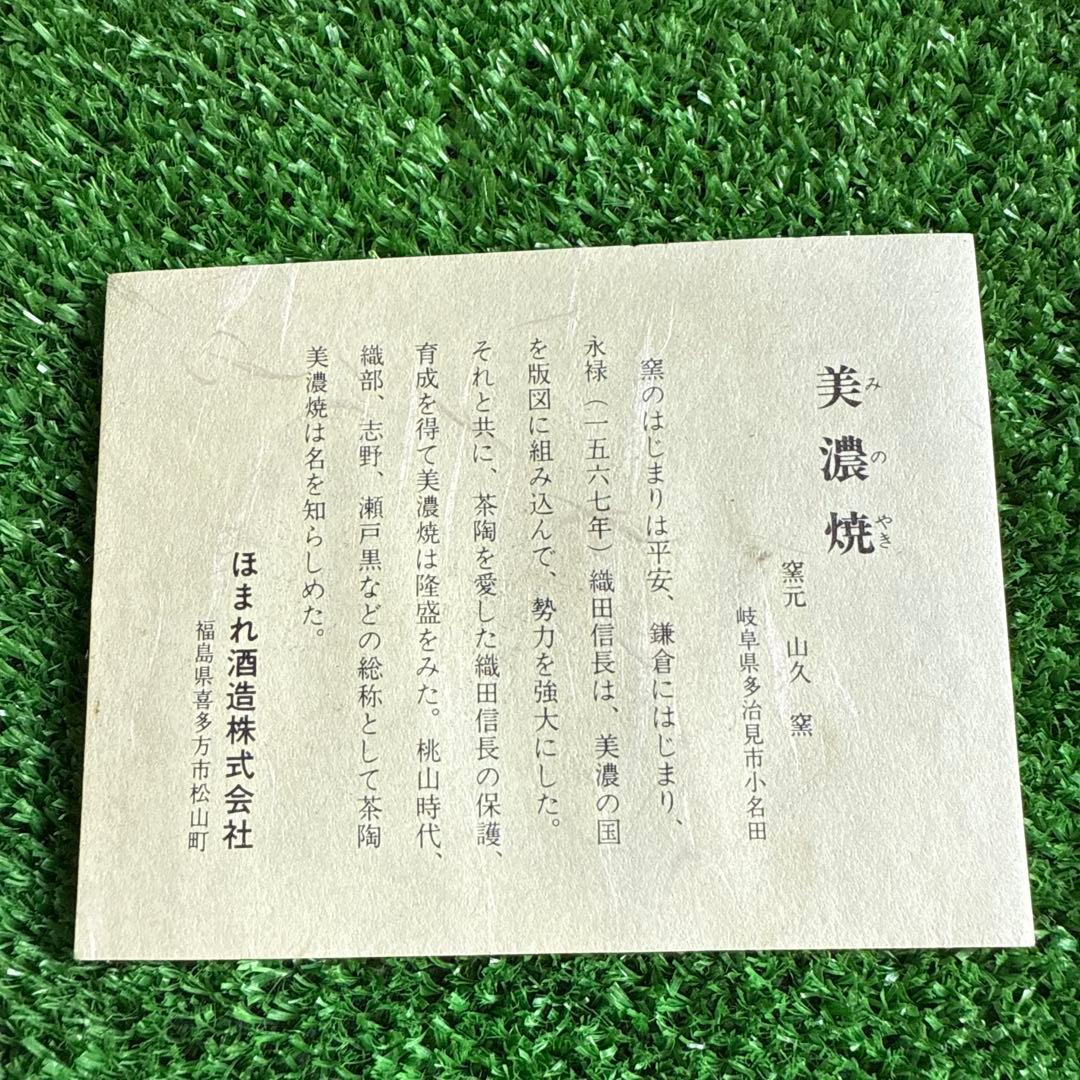 美濃焼
みのやき
窯元 山久 窯
岐阜県多治見市小名田
窯のはじまりは平安、鎌倉にはじまり、
永禄（一五六七年）織田信長は、美濃の国
を版図に組み込んで、勢力を強大にした。
それと共に、茶陶を愛した織田信長の保護、
育成を得て美濃焼は隆盛をみた。桃山時代、
織部、志野、瀬戸黒などの総称として茶陶
美濃焼は名を知らしめた。
ほまれ酒造株式会社
福島県喜多方市松山町